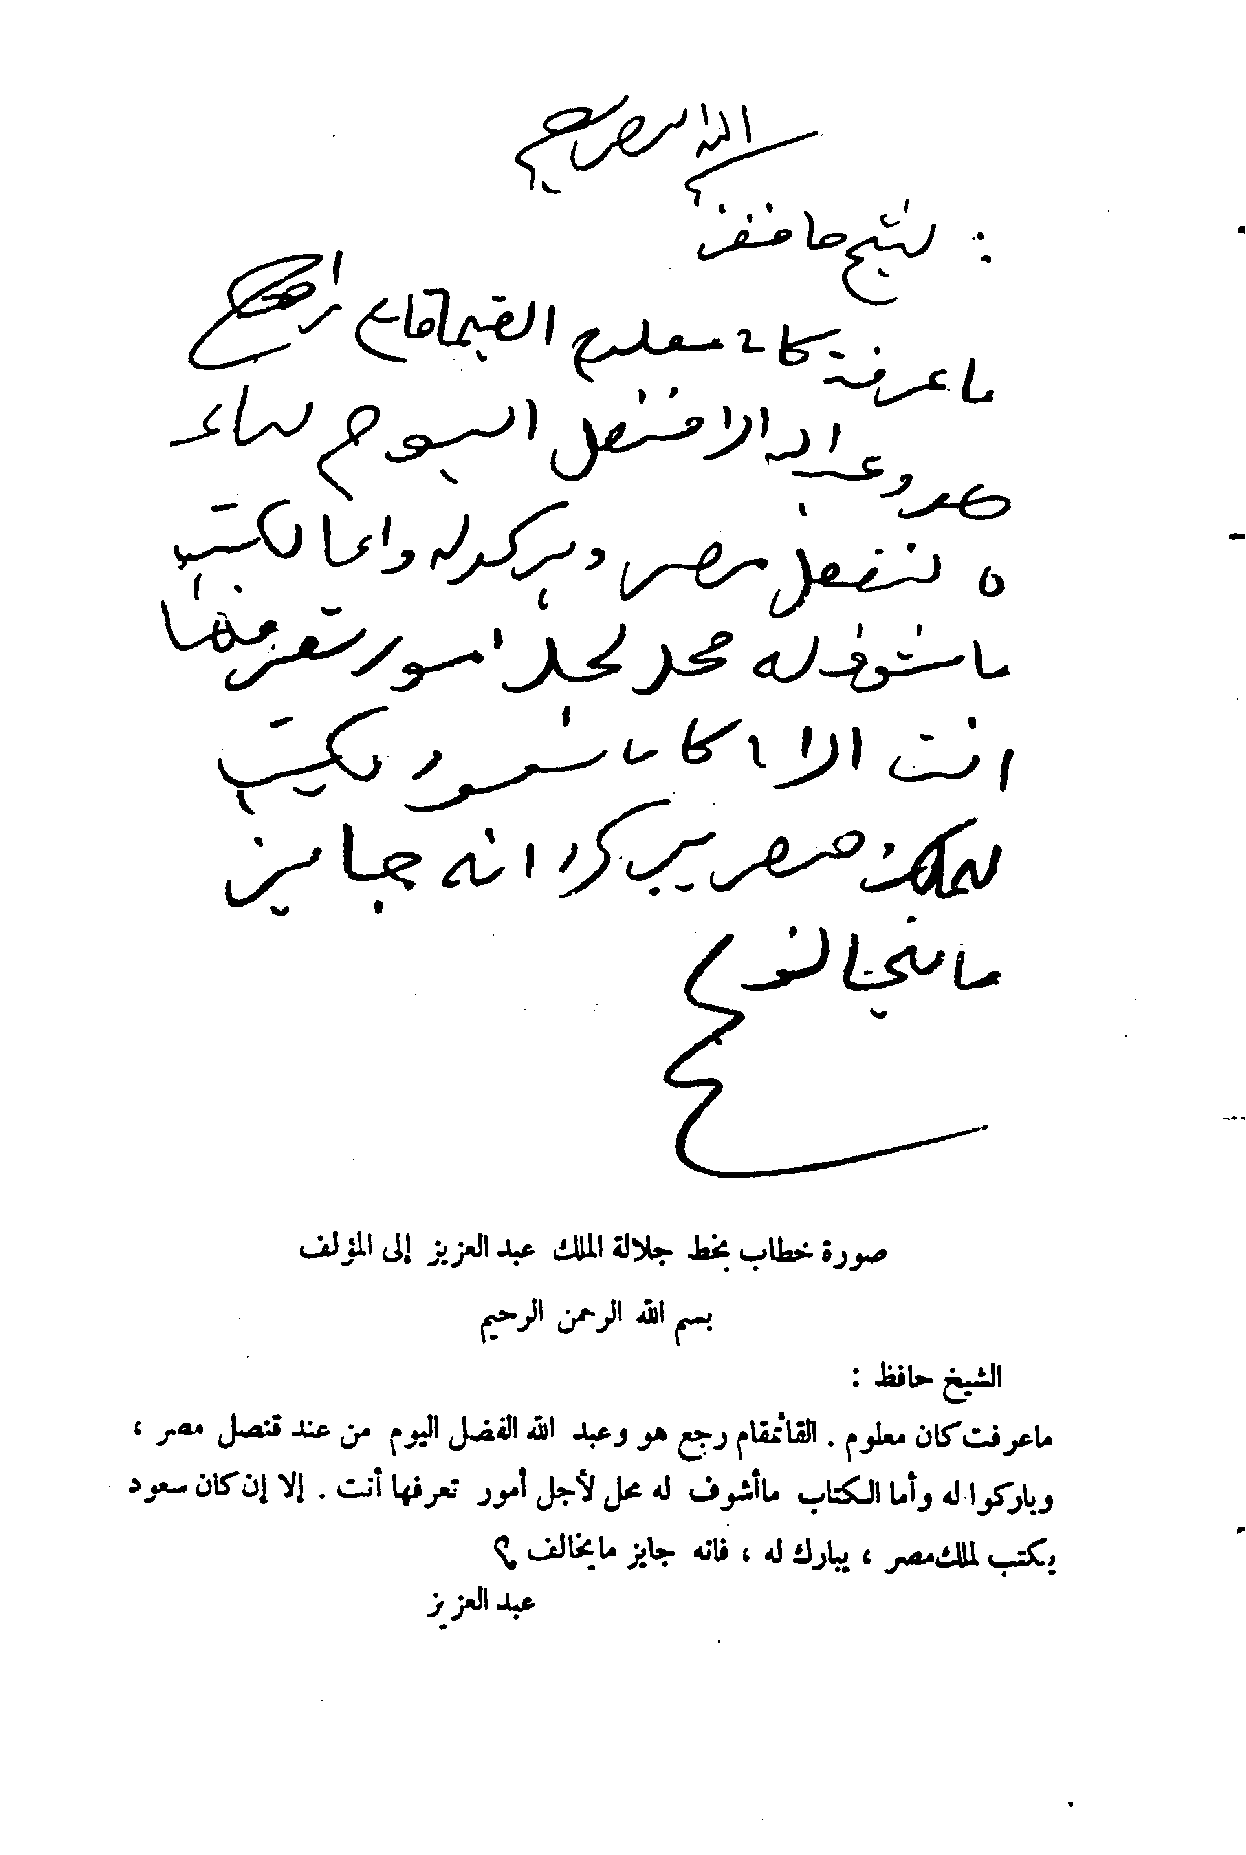 الله الرحمن الرحيم
لشيخ حافظ :
ما عرفة كان معلوم القيماقام
هو وعبد الله الافضل اليوم
مصر
ما شوف له محل لجل امور تعرفها
انت الا كان سعود يكتب
مصر انه جايز
ما يخالف
صورة خطاب بخط جلالة الملك عبد العزيز إلى المؤلف
بسم الله الرحمن الرحيم
الشيخ حافظ :
ماعرفت كان معلوم . القائمقام رجع هو وعبد الله الفضل اليوم من عند قنصل مصر ،
وباركوا له وأما الكتاب ماأشوف له محل لأجل أمور تعرفها أنت . إلا إن كان سعود
يكتب لملك مصر ، يبارك له ، فانه جايز مايخالف ؟
عبد العزيز